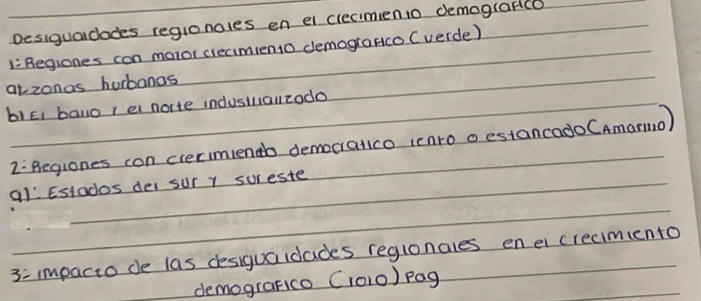 Desigualdades regionales en el crecimiento demografico
1: Regiones con maior crecimiento demografico (verde)
a): zonas hurbanas
b) El bajio y el norte industrializado
2: Regiones con crecimiendo democratico lento o estancado (Amarillo)
a): Estados del sur y sureste
3: impacto de las desigualdades regionales en el crecimiento
demografico (rojo) pag